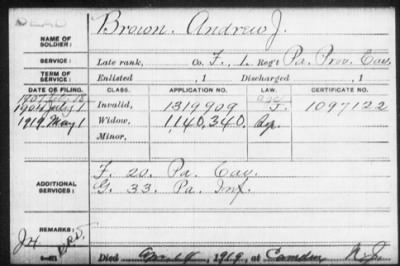 DEAD
NAME OF SOLDIER: Brown, Andrew J.
SERVICE: Late rank, Co. F, 1, Reg't Pa. Prov. Cav.
TERM OF SERVICE: Enlisted , 1 Discharged , 1
DATE OF FILING. CLASS. APPLICATION NO. LAW. CERTIFICATE NO.
1907
1904 July 1 Invalid, 1319909 1097122
1919 May 1 Widow, 1,140,340
Minor,
ADDITIONAL SERVICES: F. 20. Pa. Cav.
G. 33. Pa. Inf.
REMARKS:
Died 1919, at Camden N.J.